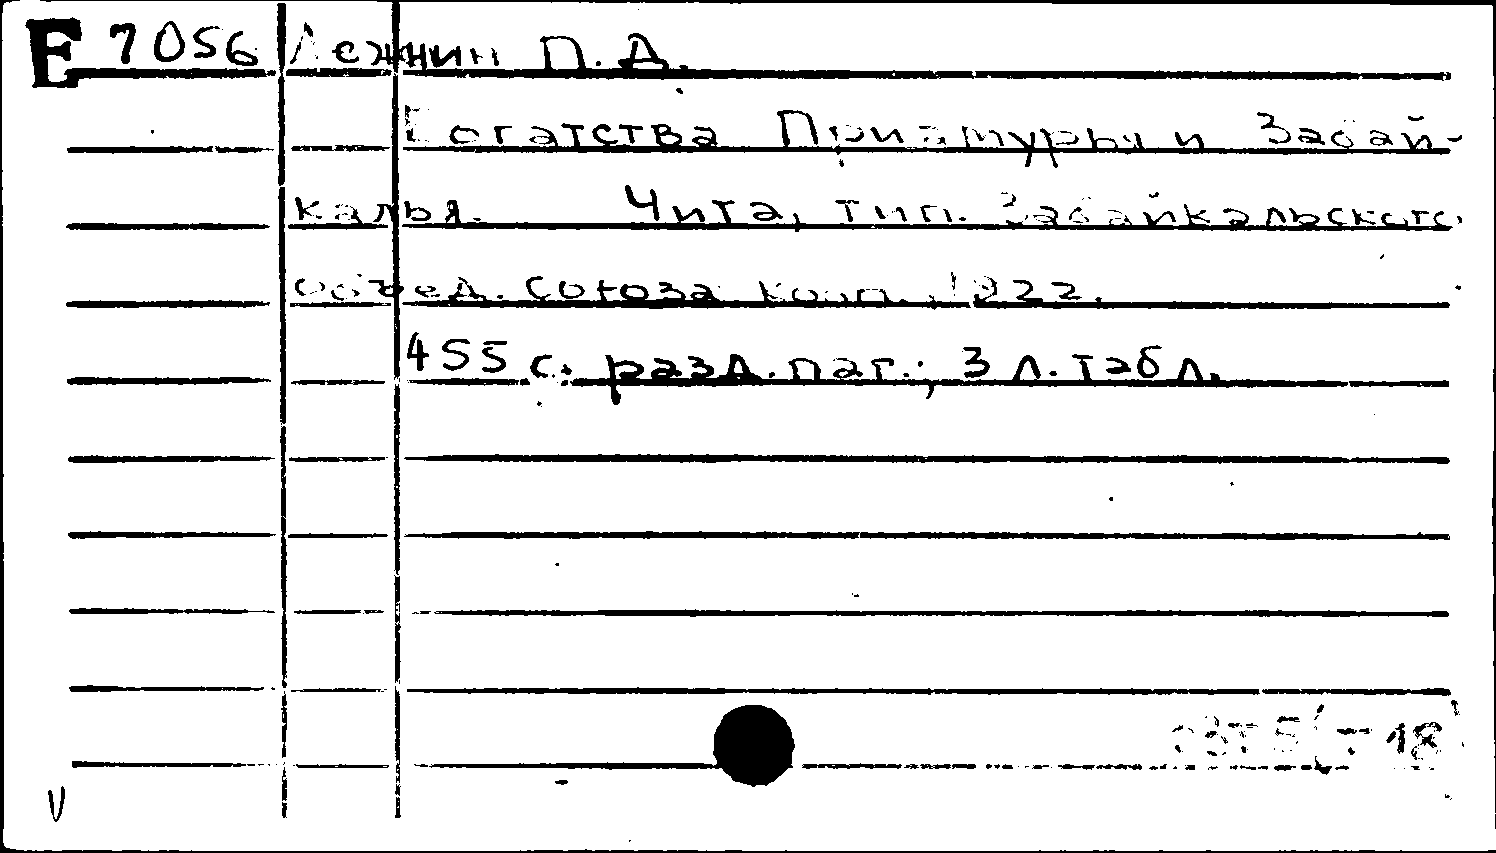 E 7056 Лежнин П. Д.
Богатства Приамурья и Забай-
калья. Чита, тип. Забайкальского
объед. союза кооп., 1922.
455 с. разд. паг.; 3 л. табл.
V